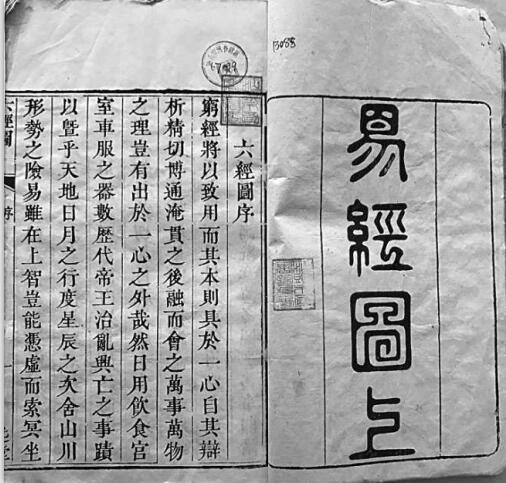 易經圖上
六經圖序
窮經將以致用而其本則具於一心自其辯
析精切博通淹貫之後融而會之萬事萬物
之理豈有出於一心之外哉然日用飲食宮
室車服之器數歷代帝王治亂興亡之事蹟
以曁乎天地日月之行度星辰之次舍山川
形勢之險易雖在上智豈能憑虛而索冥坐
六經圖
序
一